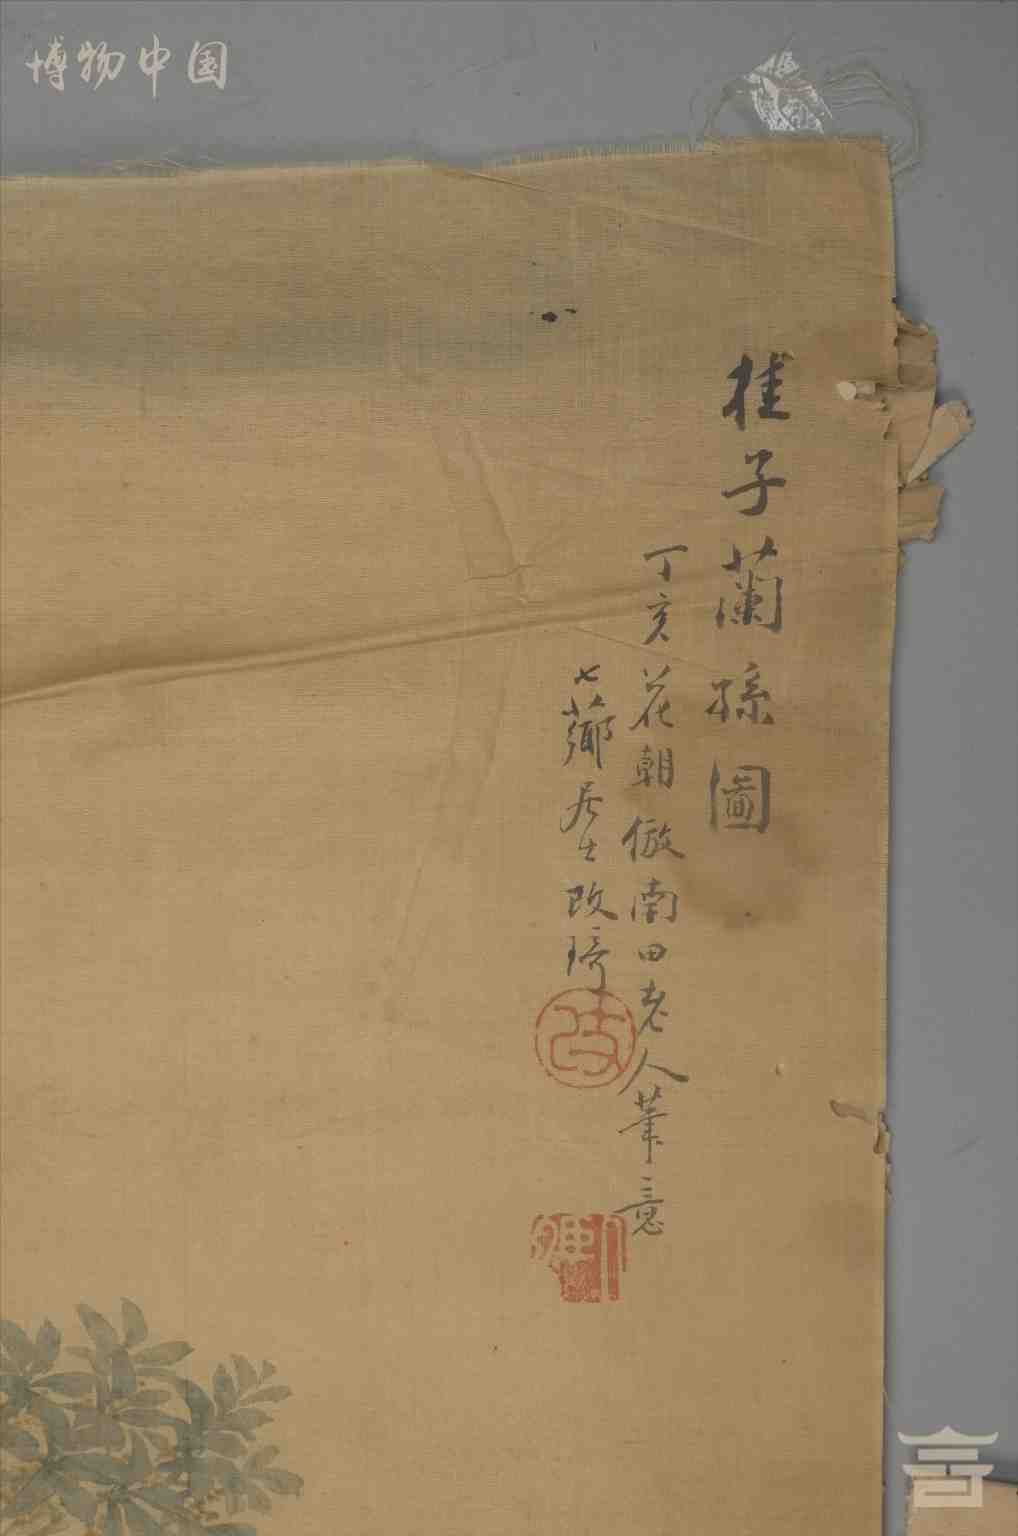 博物中国
桂子蘭孫圖
丁亥花朝倣南田老人筆意
七薌居士改琦
改